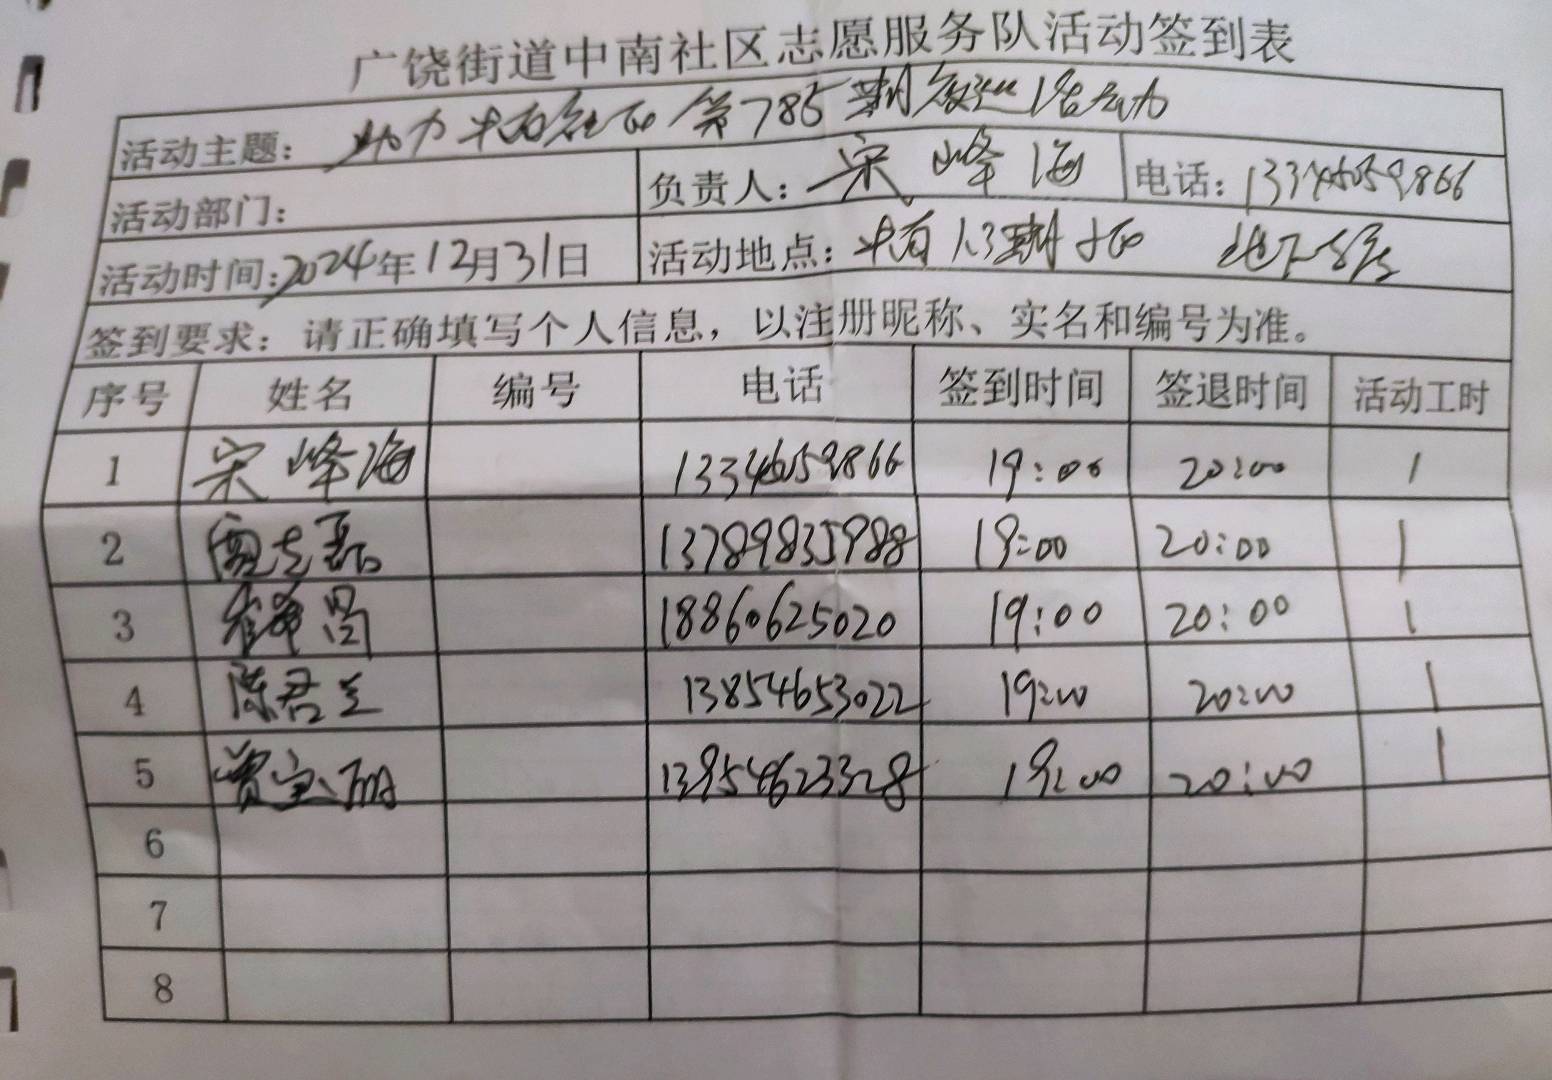 广饶街道中南社区志愿服务队活动签到表
活动主题：助力中南社区第785期夜巡活动
活动部门：
负责人：宋峰海 电话：13346059866
活动时间：2024年12月31日 活动地点：中南 社区
签到要求：请正确填写个人信息，以注册昵称、实名和编号为准。
序号 姓名 编号 电话 签到时间 签退时间 活动工时
1 宋峰海 13346059866 19:00 20:00 1
2 13789835988 19:00 20:00 1
3 18860625020 19:00 20:00 1
4 陈君兰 13854653022 19:00 20:00 1
5 贾宝丽 13954623328 19:00 20:00 1
6
7
8